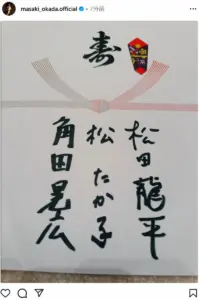 masaki_okada.official • 7分前
寿
松田龍平
松たか子
角田晃広